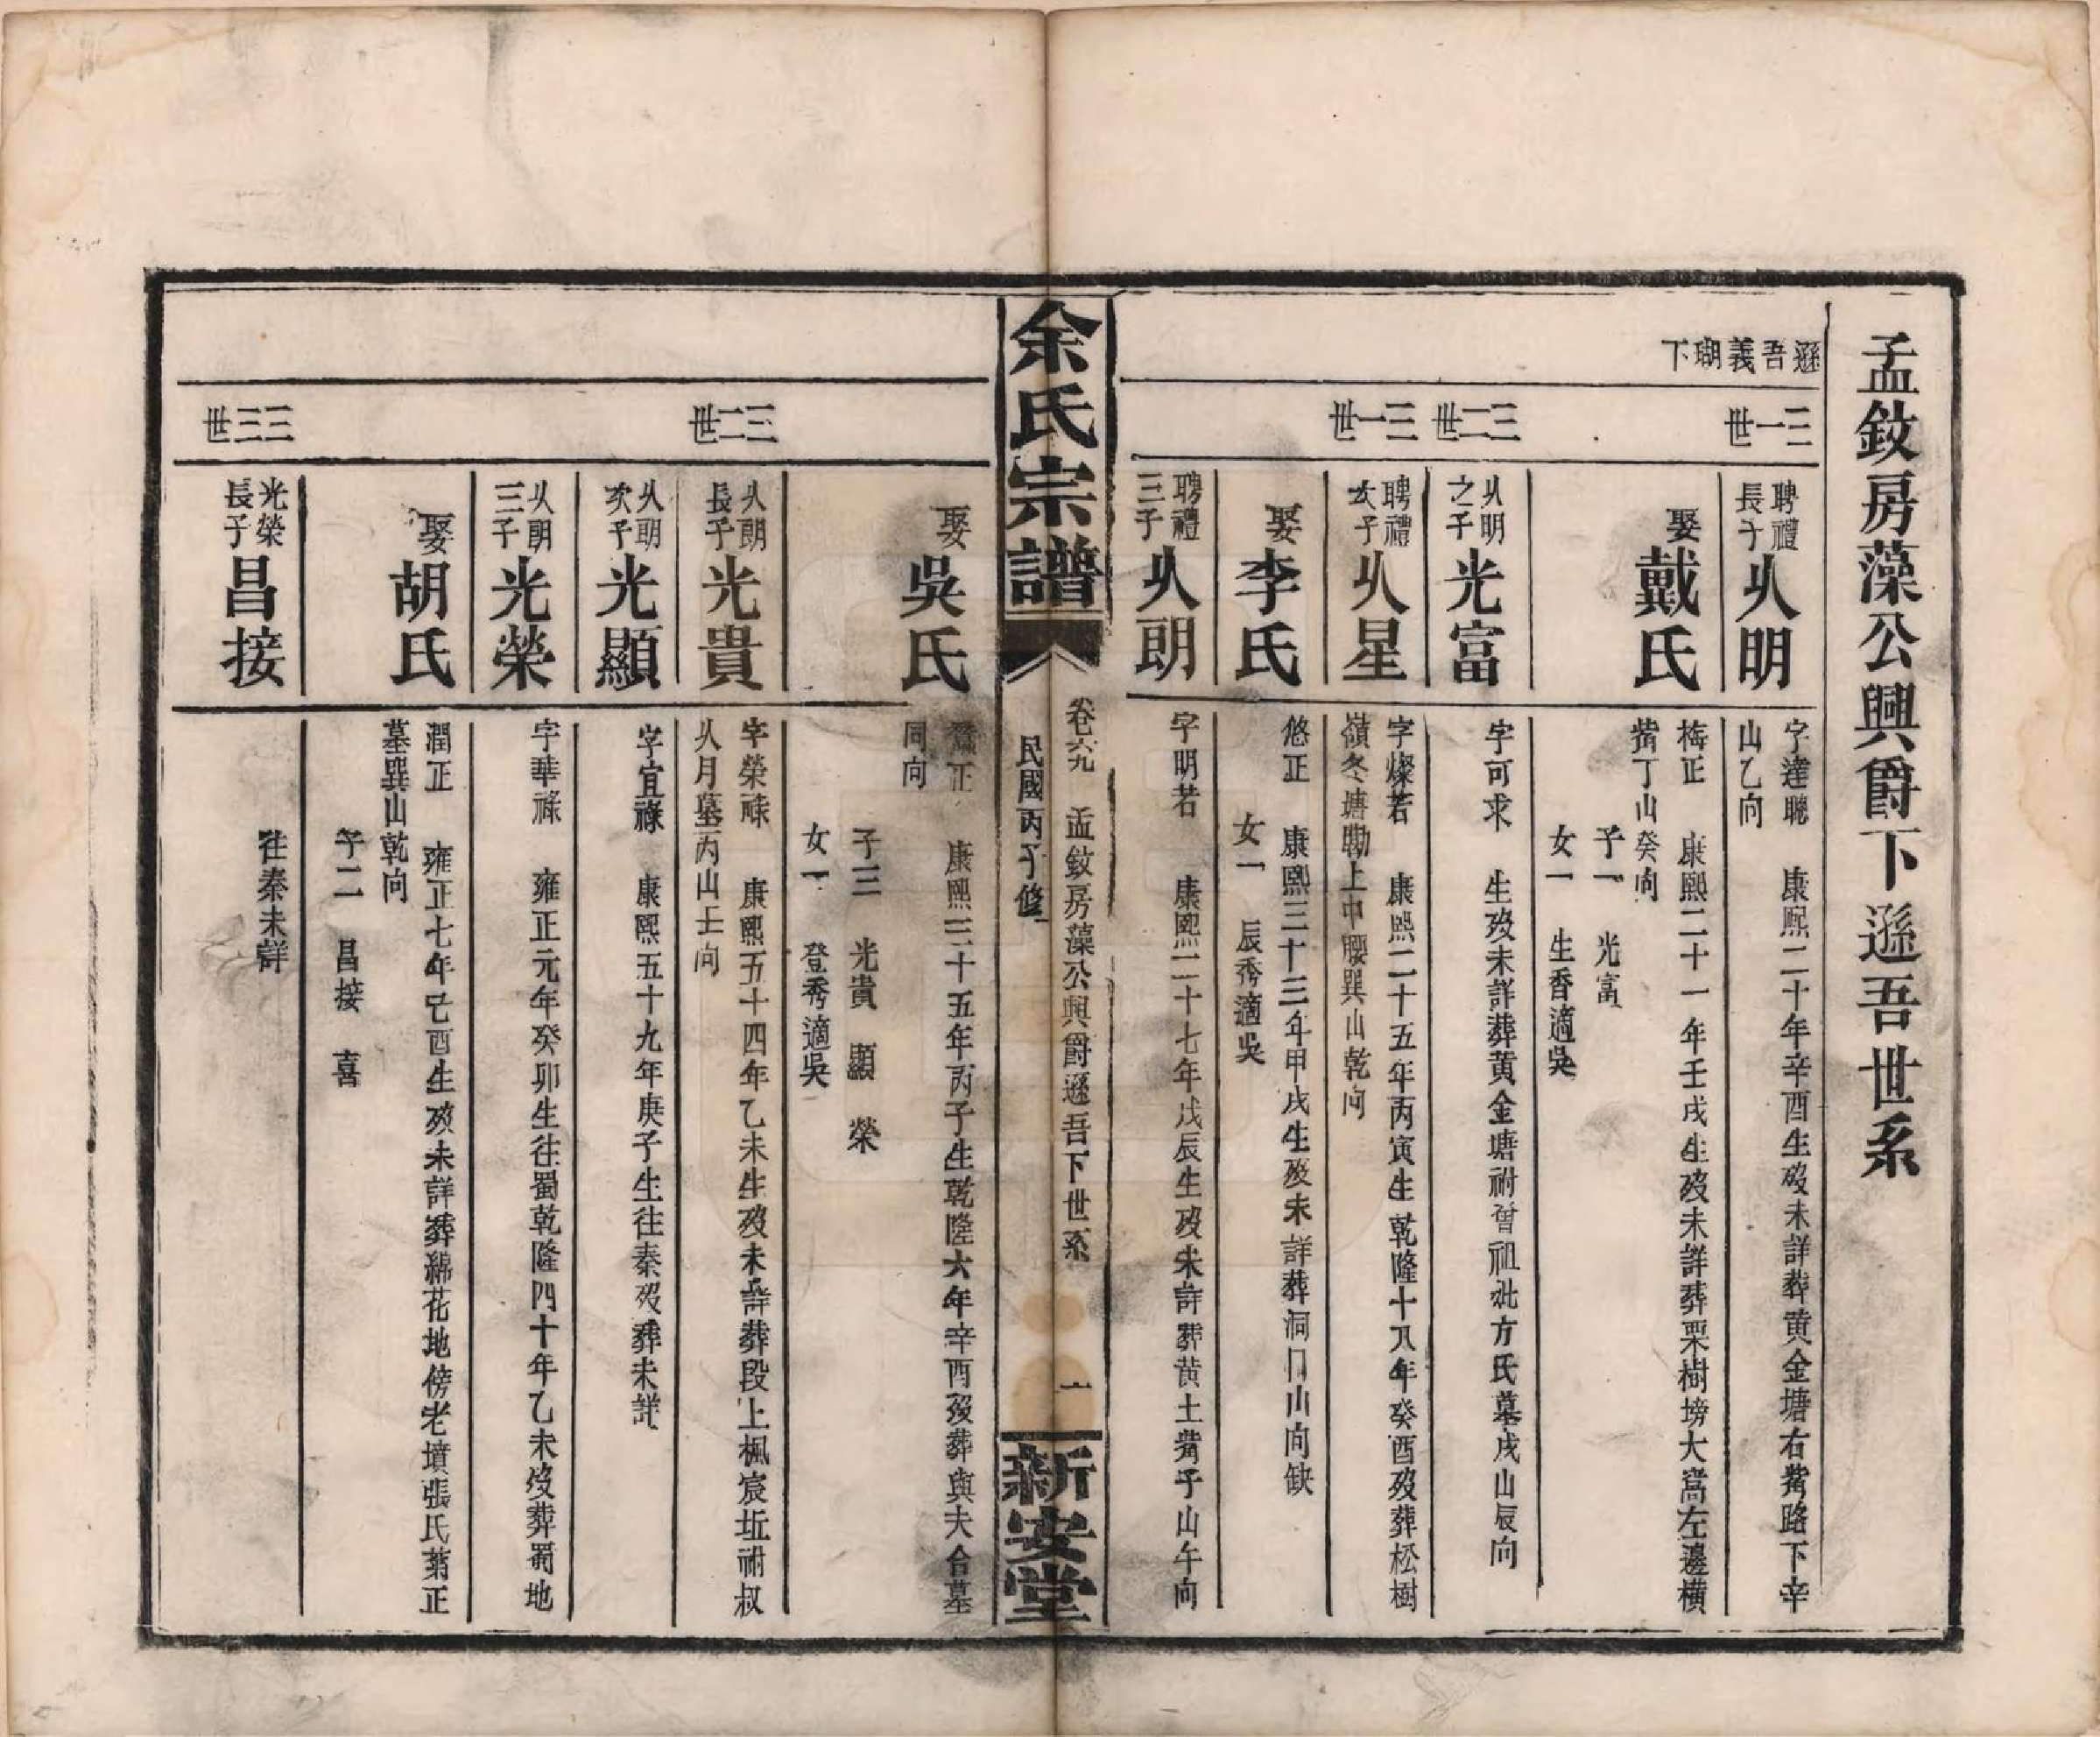 孟釹房藻公興爵下遜吾世系
遜吾義瑚下
三一世
聘禮長子
㕥明
字達聰 康熙二十年辛酉生歿未詳葬黃金塘右觜路下辛
山乙向
娶戴氏
梅正 康熙二十一年壬戌生歿未詳葬栗樹塝大窩左邊橫
觜丁山癸向
子一 光富
女一 生香適吳
三二世
㕥明之子
光富
字可求 生歿未詳葬黃金塘祔曾祖妣方氏墓戌山辰向
三一世
聘禮次子
㕥星
字燦若 康熙二十五年丙寅生乾隆十八年癸酉歿葬松樹
嶺冬塘勘上中腰巽山乾向
娶李氏
悠正 康熙三十三年甲戌生歿未詳葬洞門山向缺
女一 辰秀適吳
聘禮三子
㕥朗
字明若 康熙二十七年戊辰生歿未詳葬黃土觜子山午向
余氏宗譜
卷六九 孟釹房藻公興爵遜吾下世系
民國丙子修
一
新安堂
娶吳氏
正 康熙三十五年丙子生乾隆六年辛酉歿葬與夫合墓
同向
子三 光貴 顯 榮
女一 登秀適吳
三二世
㕥朗長子
光貴
字榮祿 康熙五十四年乙未生歿未詳葬段上楓宸坵祔叔
㕥月墓丙山壬向
㕥朗次子
光顯
字宜祿 康熙五十九年庚子生往秦歿葬未詳
㕥朗三子
光榮
字華祿 雍正元年癸卯生往蜀乾隆四十年乙未歿葬蜀地
娶胡氏
潤正 雍正七年己酉生歿未詳葬綿花地傍老墳張氏菊正
墓巽山乾向
子二 昌接 喜
三三世
光榮長子
昌接
往秦未詳